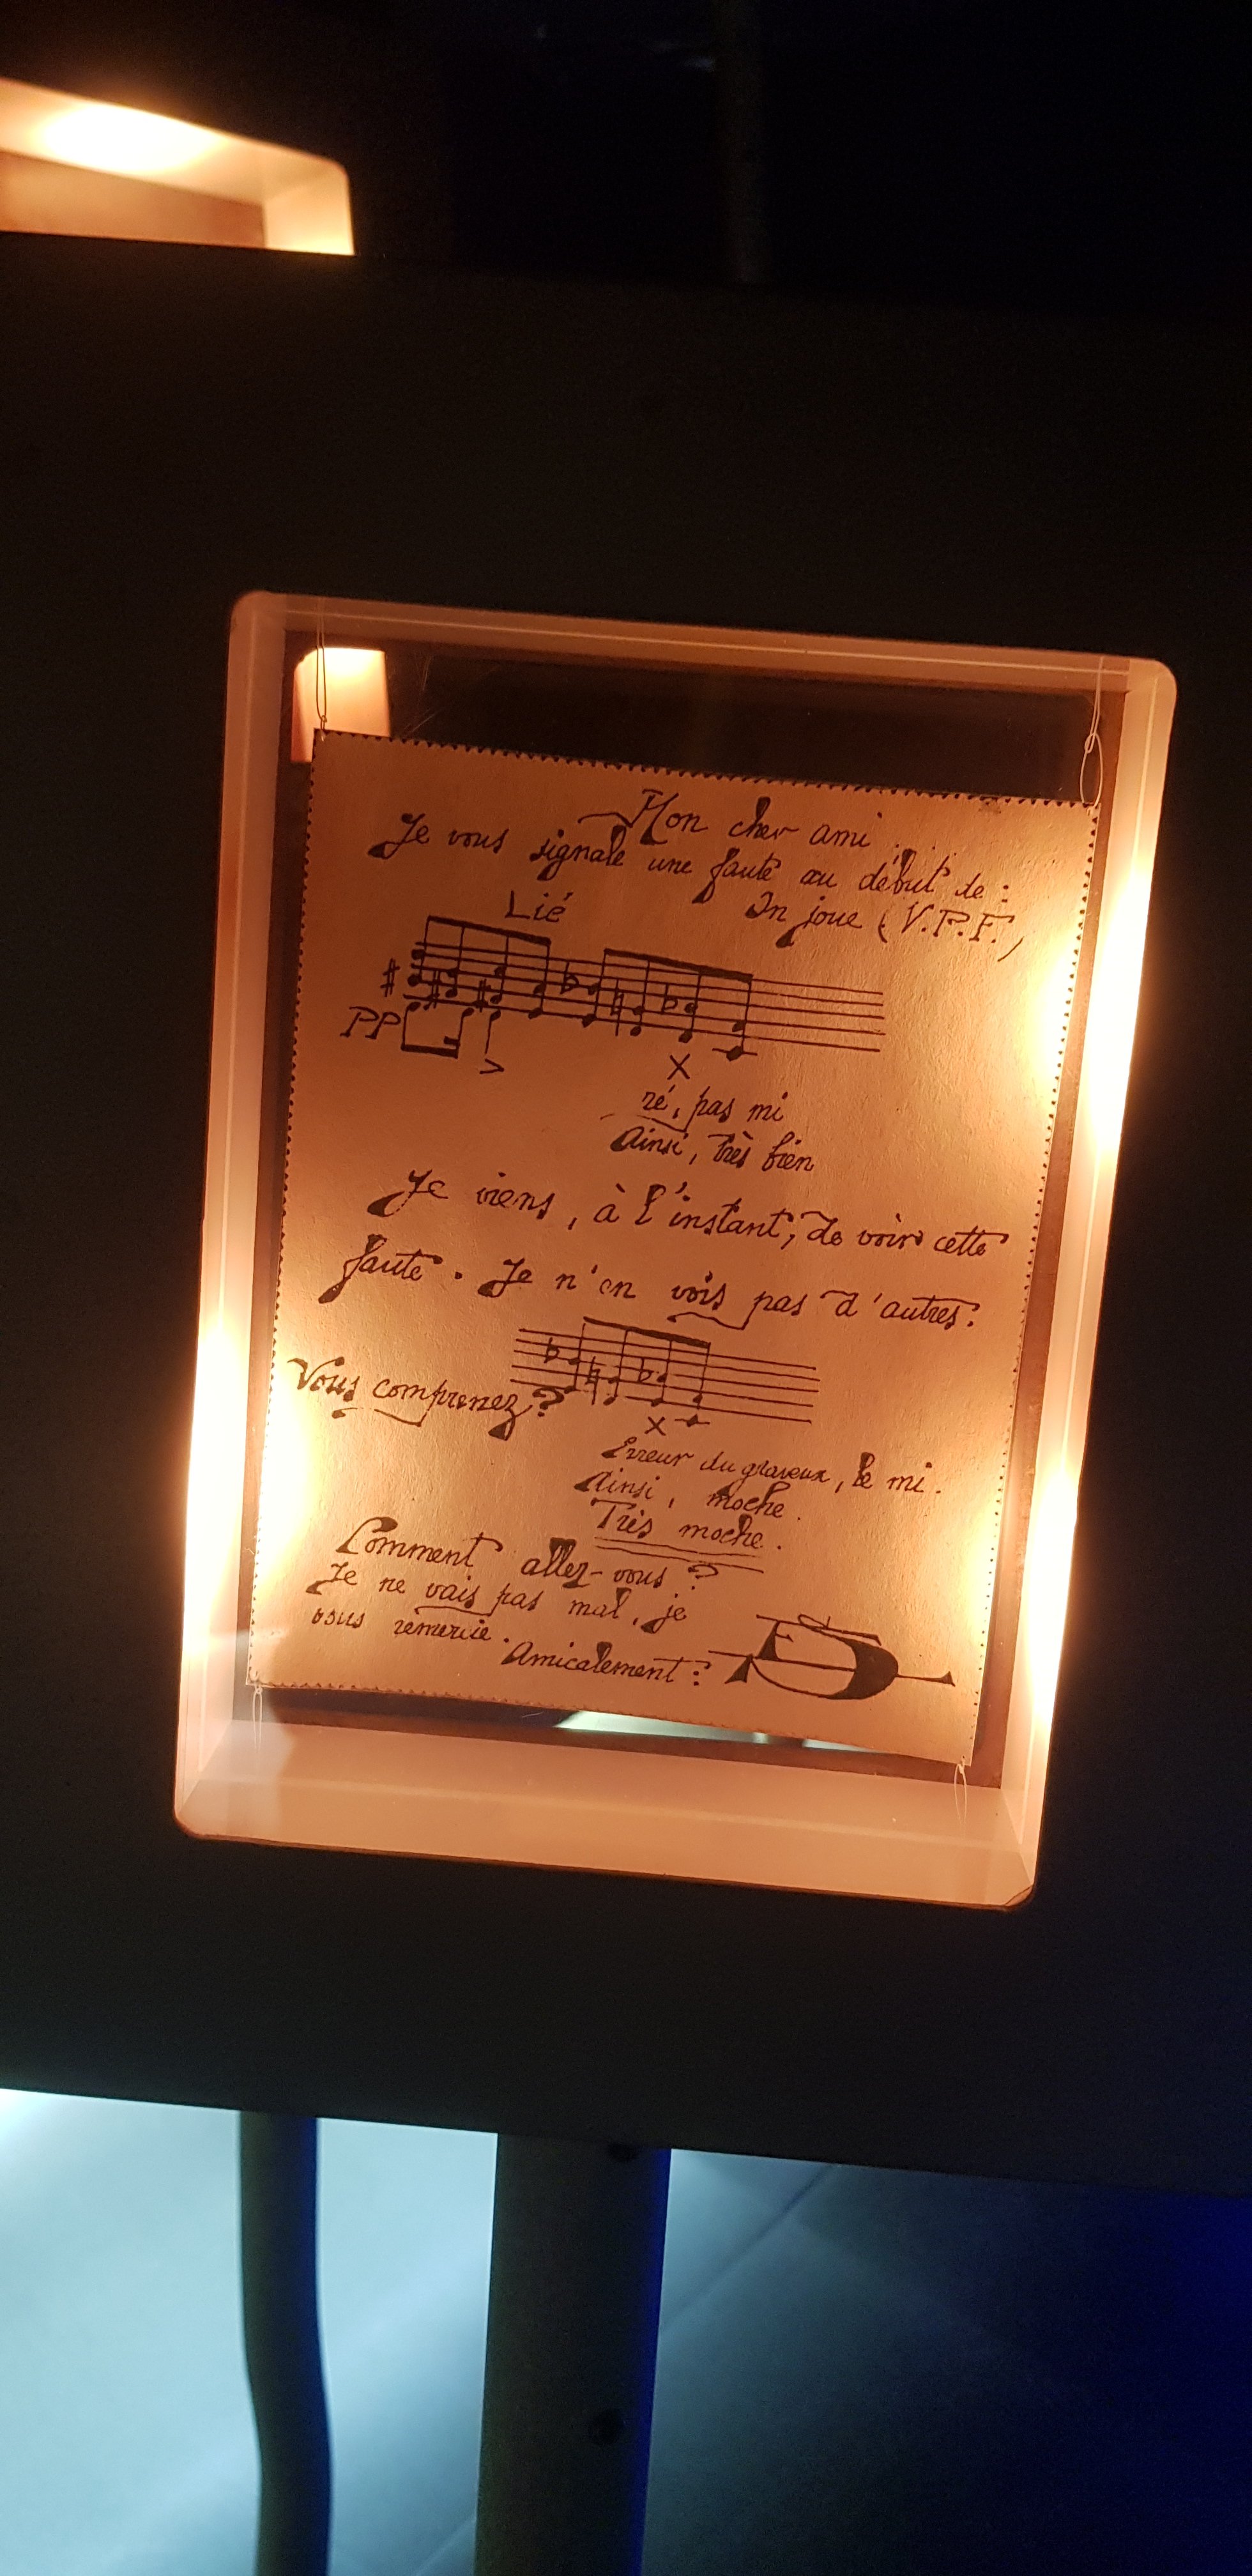 Mon cher ami
Je vous signale une faute au début de :
On joue (V.P.F.)
Lié
PP
X
ré, pas mi
Ainsi, Très bien
Je viens, à l'instant, de voir cette
faute. Je n'en vois pas d'autres.
Vous comprenez ?
X
Erreur du graveur, le mi.
Ainsi, moche.
Très moche.
Comment allez-vous ?
Je ne vais pas mal, je
vous remercie.
Amicalement :
ES